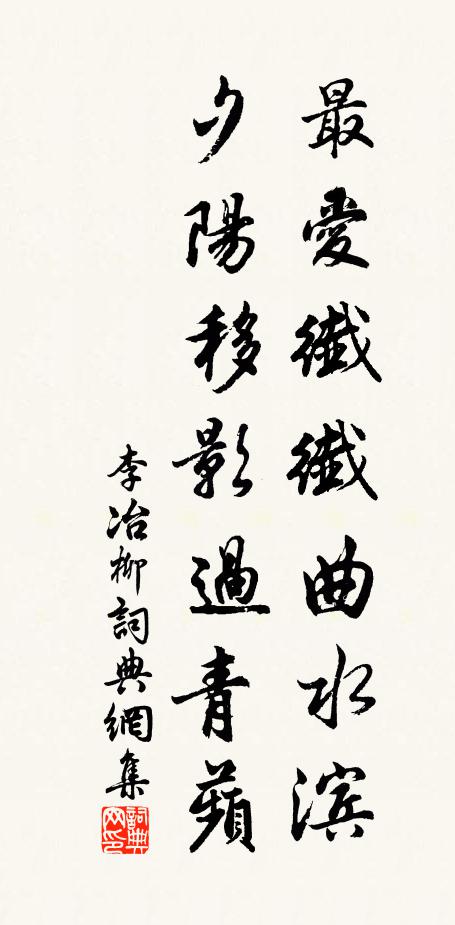 最愛纖纖曲水滨
夕陽移影過青蘋
李冶柳詞典網集
詞典网印